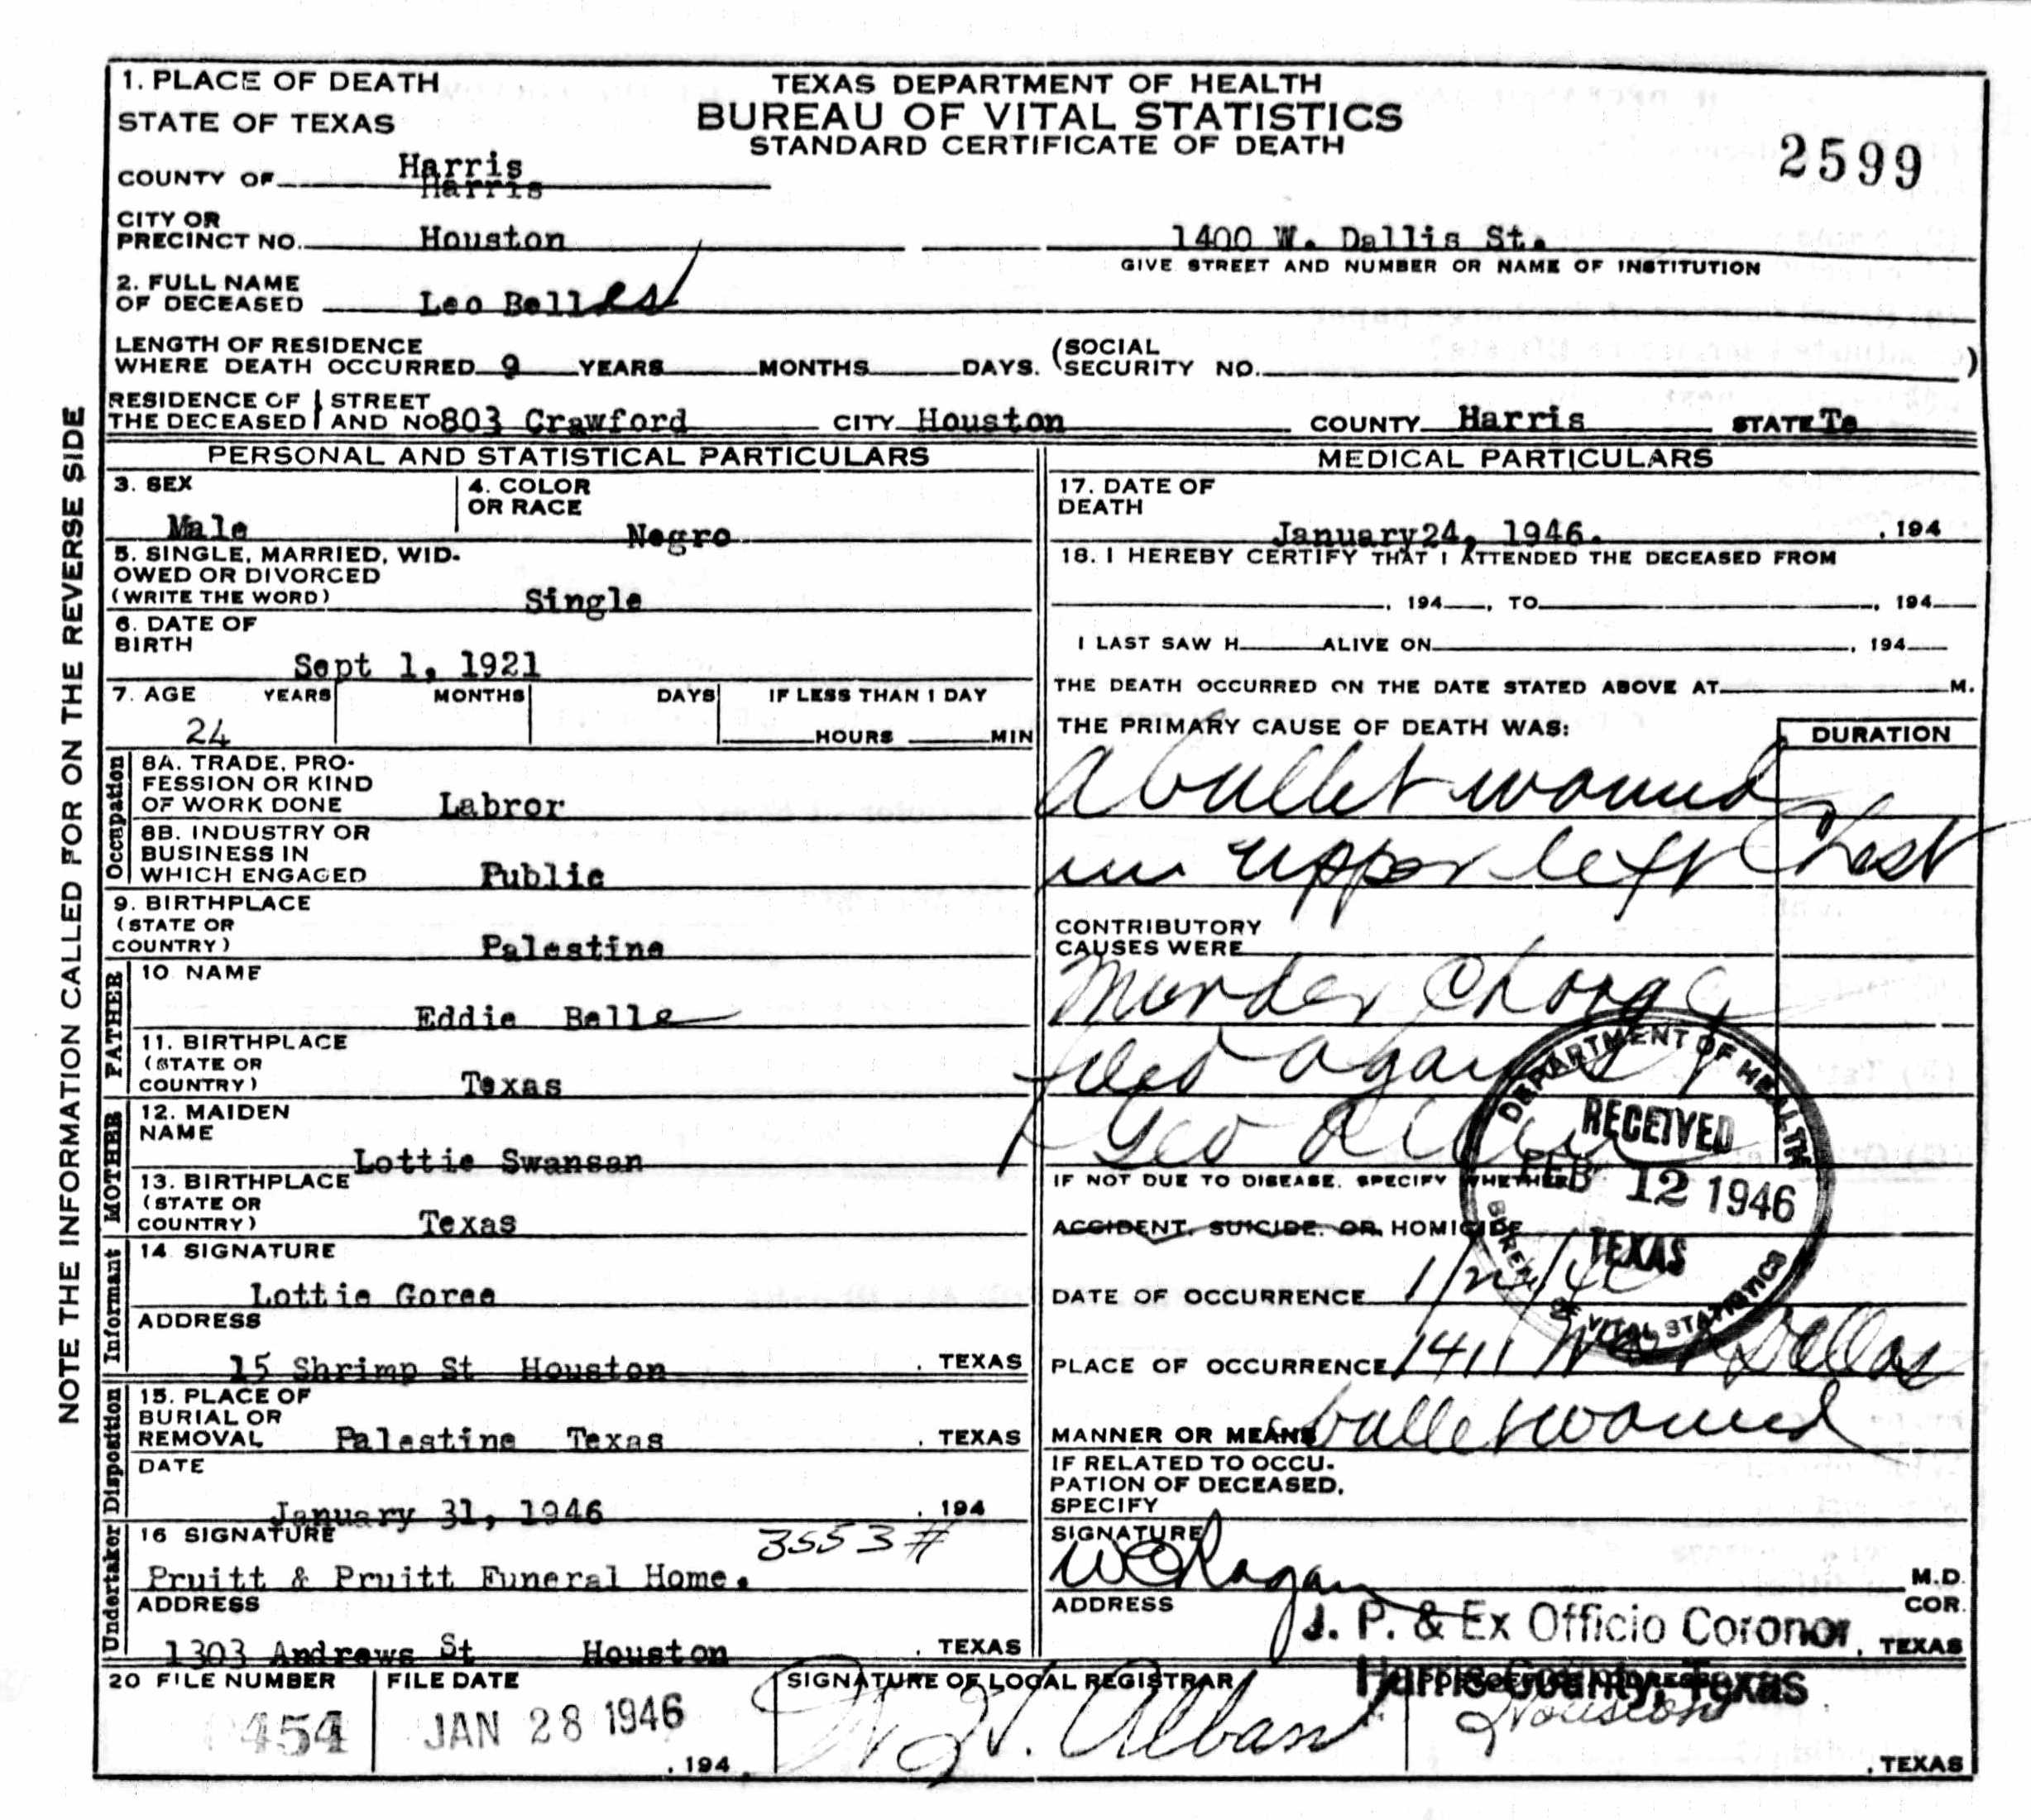 1. PLACE OF DEATH
STATE OF TEXAS
TEXAS DEPARTMENT OF HEALTH
BUREAU OF VITAL STATISTICS
STANDARD CERTIFICATE OF DEATH
2599
COUNTY OF Harris
Harris
CITY OR
PRECINCT NO. Houston
1400 W. Dallis St.
GIVE STREET AND NUMBER OR NAME OF INSTITUTION
2. FULL NAME
OF DECEASED Leo Belles
LENGTH OF RESIDENCE
WHERE DEATH OCCURRED 9 YEARS MONTHS DAYS. (SOCIAL
SECURITY NO. )
RESIDENCE OF STREET
THE DECEASED AND NO 803 Crawford CITY Houston COUNTY Harris STATE Te
NOTE THE INFORMATION CALLED FOR ON THE REVERSE SIDE
PERSONAL AND STATISTICAL PARTICULARS
3. SEX
Male
4. COLOR
OR RACE
Negro
5. SINGLE, MARRIED, WID-
OWED OR DIVORCED
(WRITE THE WORD) Single
6. DATE OF
BIRTH
Sept 1, 1921
7. AGE YEARS MONTHS DAYS IF LESS THAN 1 DAY
24 HOURS MIN
Occupation
8A. TRADE, PRO-
FESSION OR KIND
OF WORK DONE Labror
8B. INDUSTRY OR
BUSINESS IN
WHICH ENGAGED Public
9. BIRTHPLACE
(STATE OR
COUNTRY) Palestine
FATHER
10 NAME
Eddie Belle
11. BIRTHPLACE
(STATE OR
COUNTRY) Texas
MOTHER
12. MAIDEN
NAME
Lottie Swansan
13. BIRTHPLACE
(STATE OR
COUNTRY) Texas
Informant
14 SIGNATURE
Lottie Goree
ADDRESS
15 Shrimp St Houston , TEXAS
Disposition
15. PLACE OF
BURIAL OR
REMOVAL Palestine Texas , TEXAS
DATE
January 31, 1946 , 194
Undertaker
16 SIGNATURE 3553#
Pruitt & Pruitt Funeral Home.
ADDRESS
1303 Andrews St Houston , TEXAS
MEDICAL PARTICULARS
17. DATE OF
DEATH
January24, 1946. , 194
18. I HEREBY CERTIFY THAT I ATTENDED THE DECEASED FROM
, 194 , TO , 194
I LAST SAW H ALIVE ON , 194
THE DEATH OCCURRED ON THE DATE STATED ABOVE AT M.
THE PRIMARY CAUSE OF DEATH WAS: DURATION
A bullet wound
in upper left Chest
CONTRIBUTORY
CAUSES WERE
Murder Charge
filed against
Geo
IF NOT DUE TO DISEASE, SPECIFY WHETHER
ACCIDENT, SUICIDE, OR HOMICIDE
DEPARTMENT OF HEALTH
RECEIVED
FEB 12 1946
TEXAS
BUREAU OF VITAL STATISTICS
DATE OF OCCURRENCE 1/24/46
PLACE OF OCCURRENCE 1411 West Dallas
MANNER OR MEANS bullet wound
IF RELATED TO OCCU-
PATION OF DECEASED,
SPECIFY
SIGNATURE
W C Ragan M.D.
ADDRESS COR.
J. P. & Ex Officio Coronor , TEXAS
Harris County, Texas
20 FILE NUMBER FILE DATE SIGNATURE OF LOCAL REGISTRAR
454 JAN 28 1946 , 194 W. H. Alban Houston , TEXAS